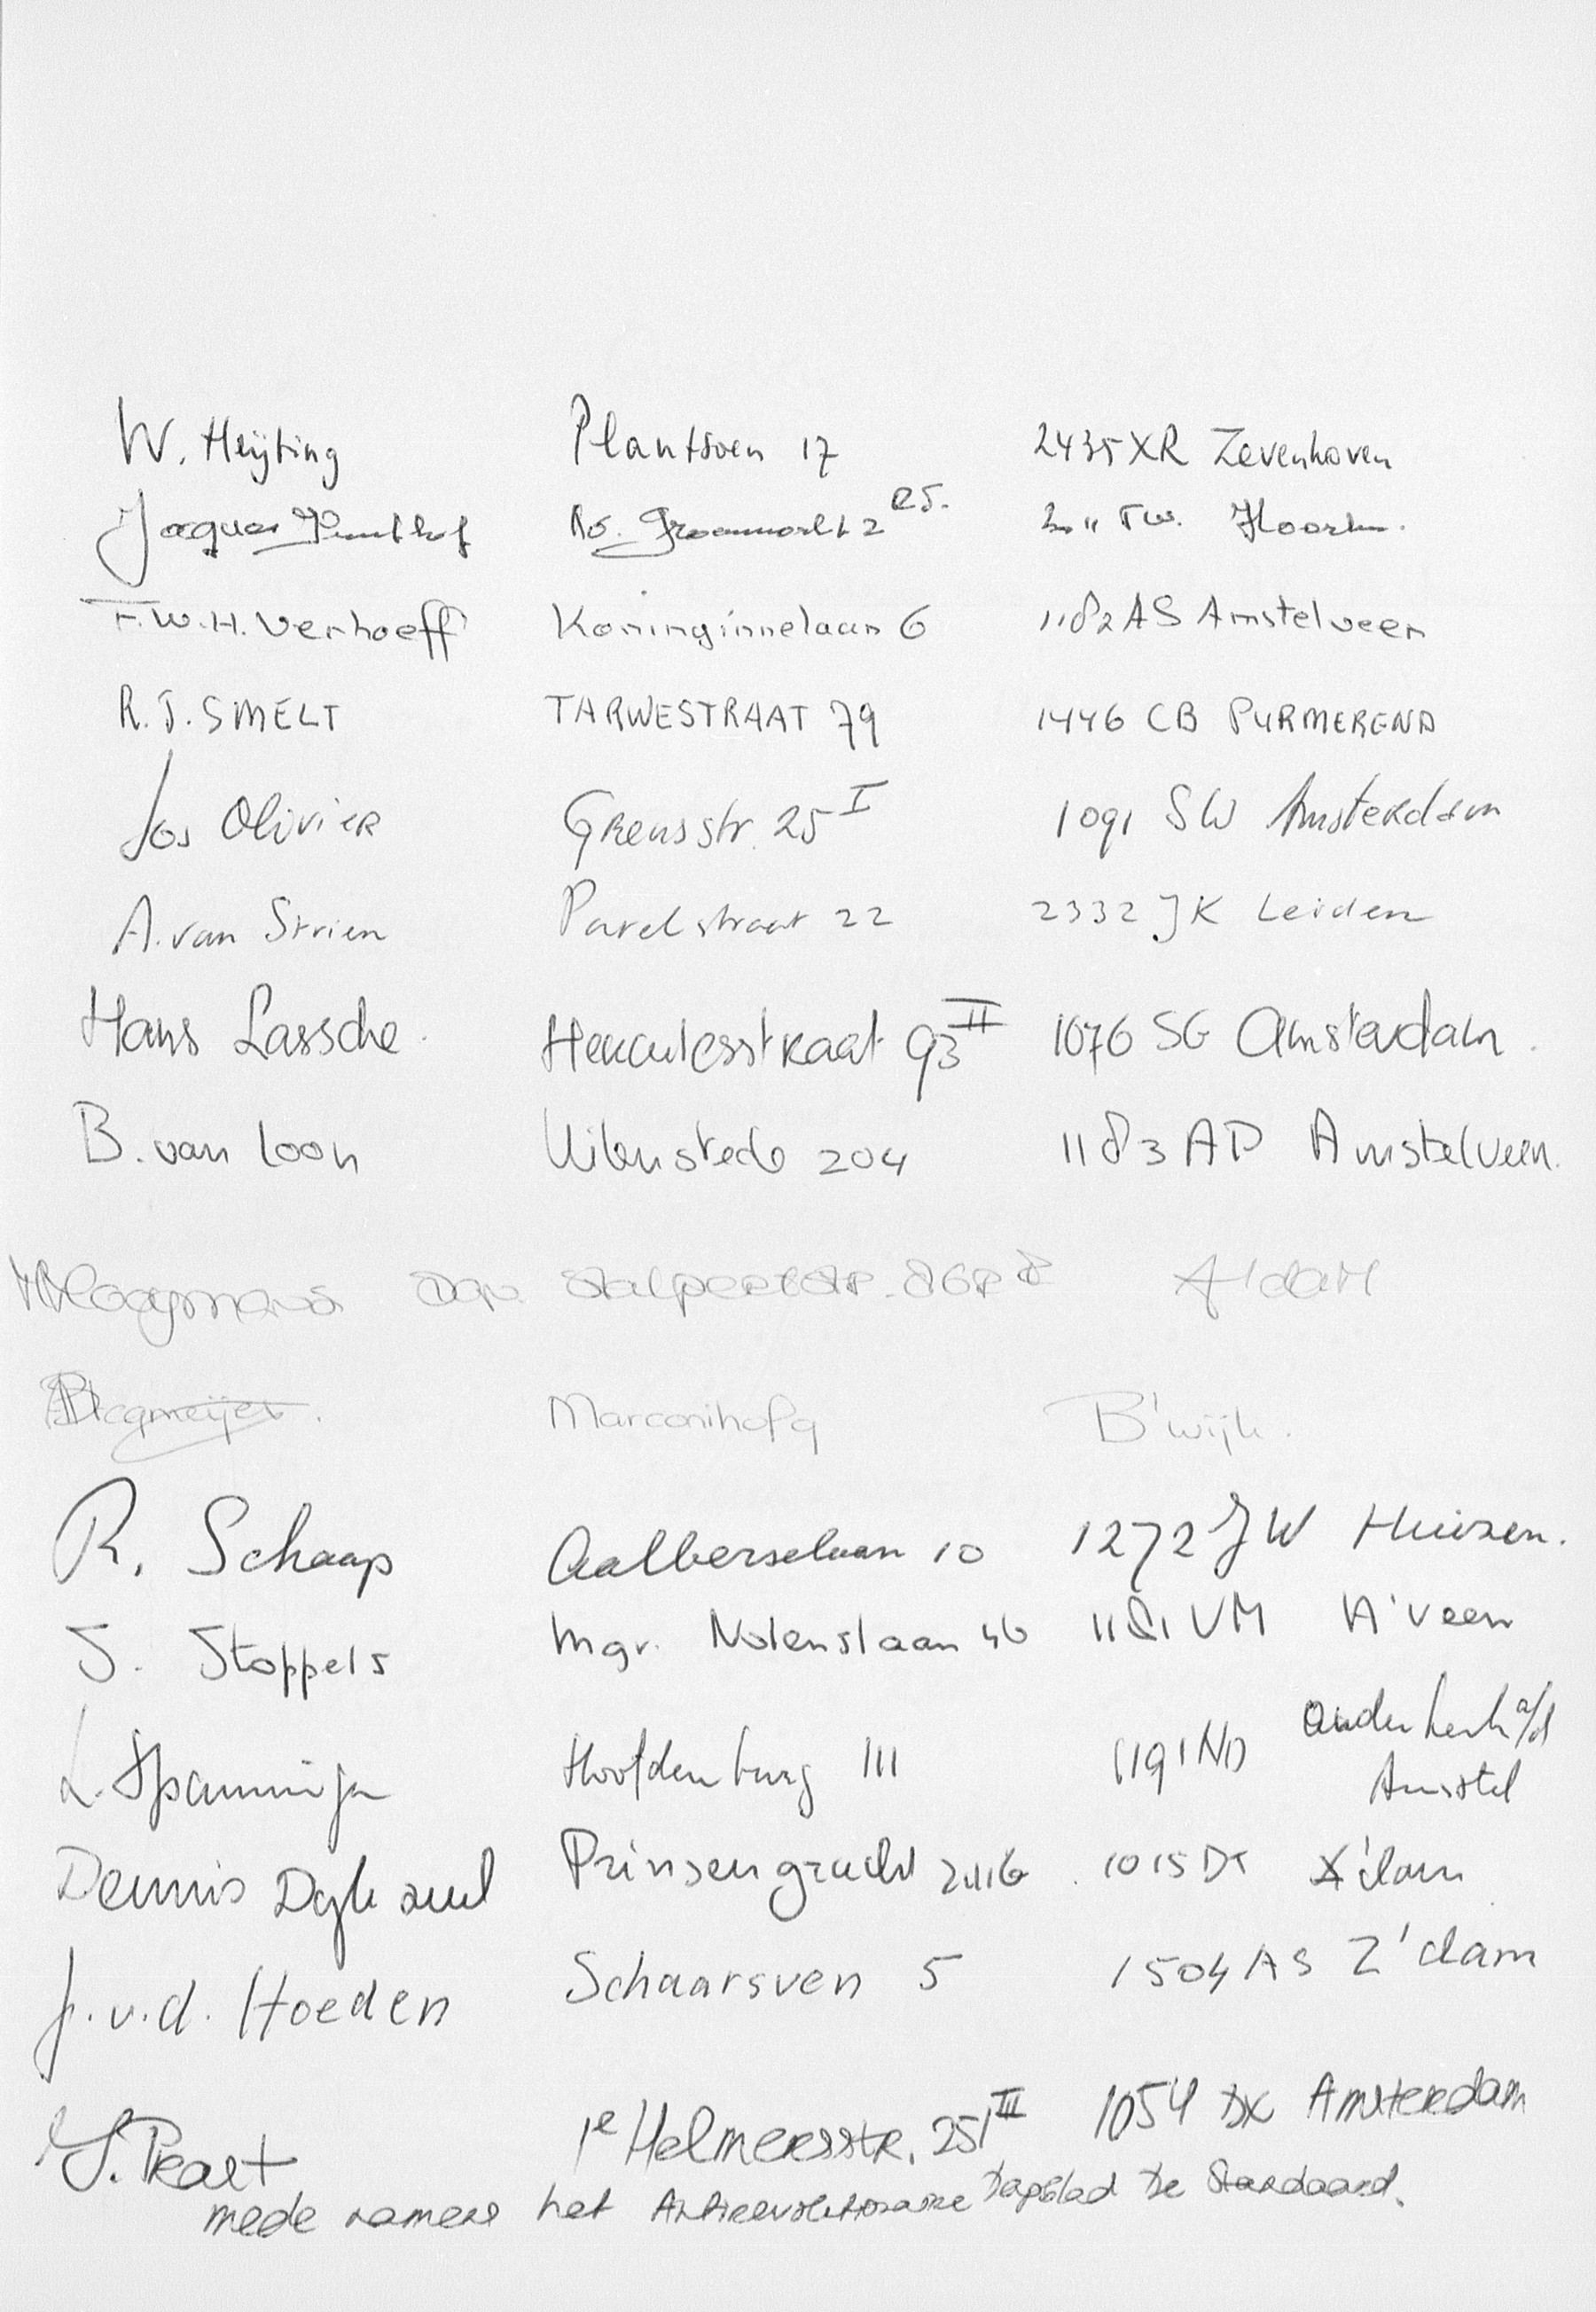 W. Heijting Plantsoen 17 2435 XR Zevenhoven
Jacques 25.
F.W.H. Verhoeff Koninginnelaan 6 1182 AS Amstelveen
R.J. SMELT TARWESTRAAT 79 1446 CB PURMEREND
Jos Olivier Grensstr. 25 I 1091 SW Amsterdam
A. van Strien Parelstraat 22 2332 JK Leiden
Hans Lassche. Herculesstraat 93 II 1076 SG Amsterdam.
B. van Loon Uilenstede 204 1183 AD Amstelveen.
Stalpertstr. A'dam
Marconihof 9 B'wijk.
R. Schaap Aalberselaan 10 1272 JW Huizen.
J. Stoppels Mgr. Nolenslaan 46 1181 VM A'veen
L. Spanninga Hoofdenburg 111 1191 ND Ouderkerk a/d
Amstel
Dennis Prinsengracht 1015 DX A'dam
J. v.d. Hoeden Schaarsven 5 1504 AS Z'dam
J. Praet 1e Helmersstr. 251 III 1054 DX Amsterdam
mede namens het Antirevolutionaire Dagblad De Standaard.